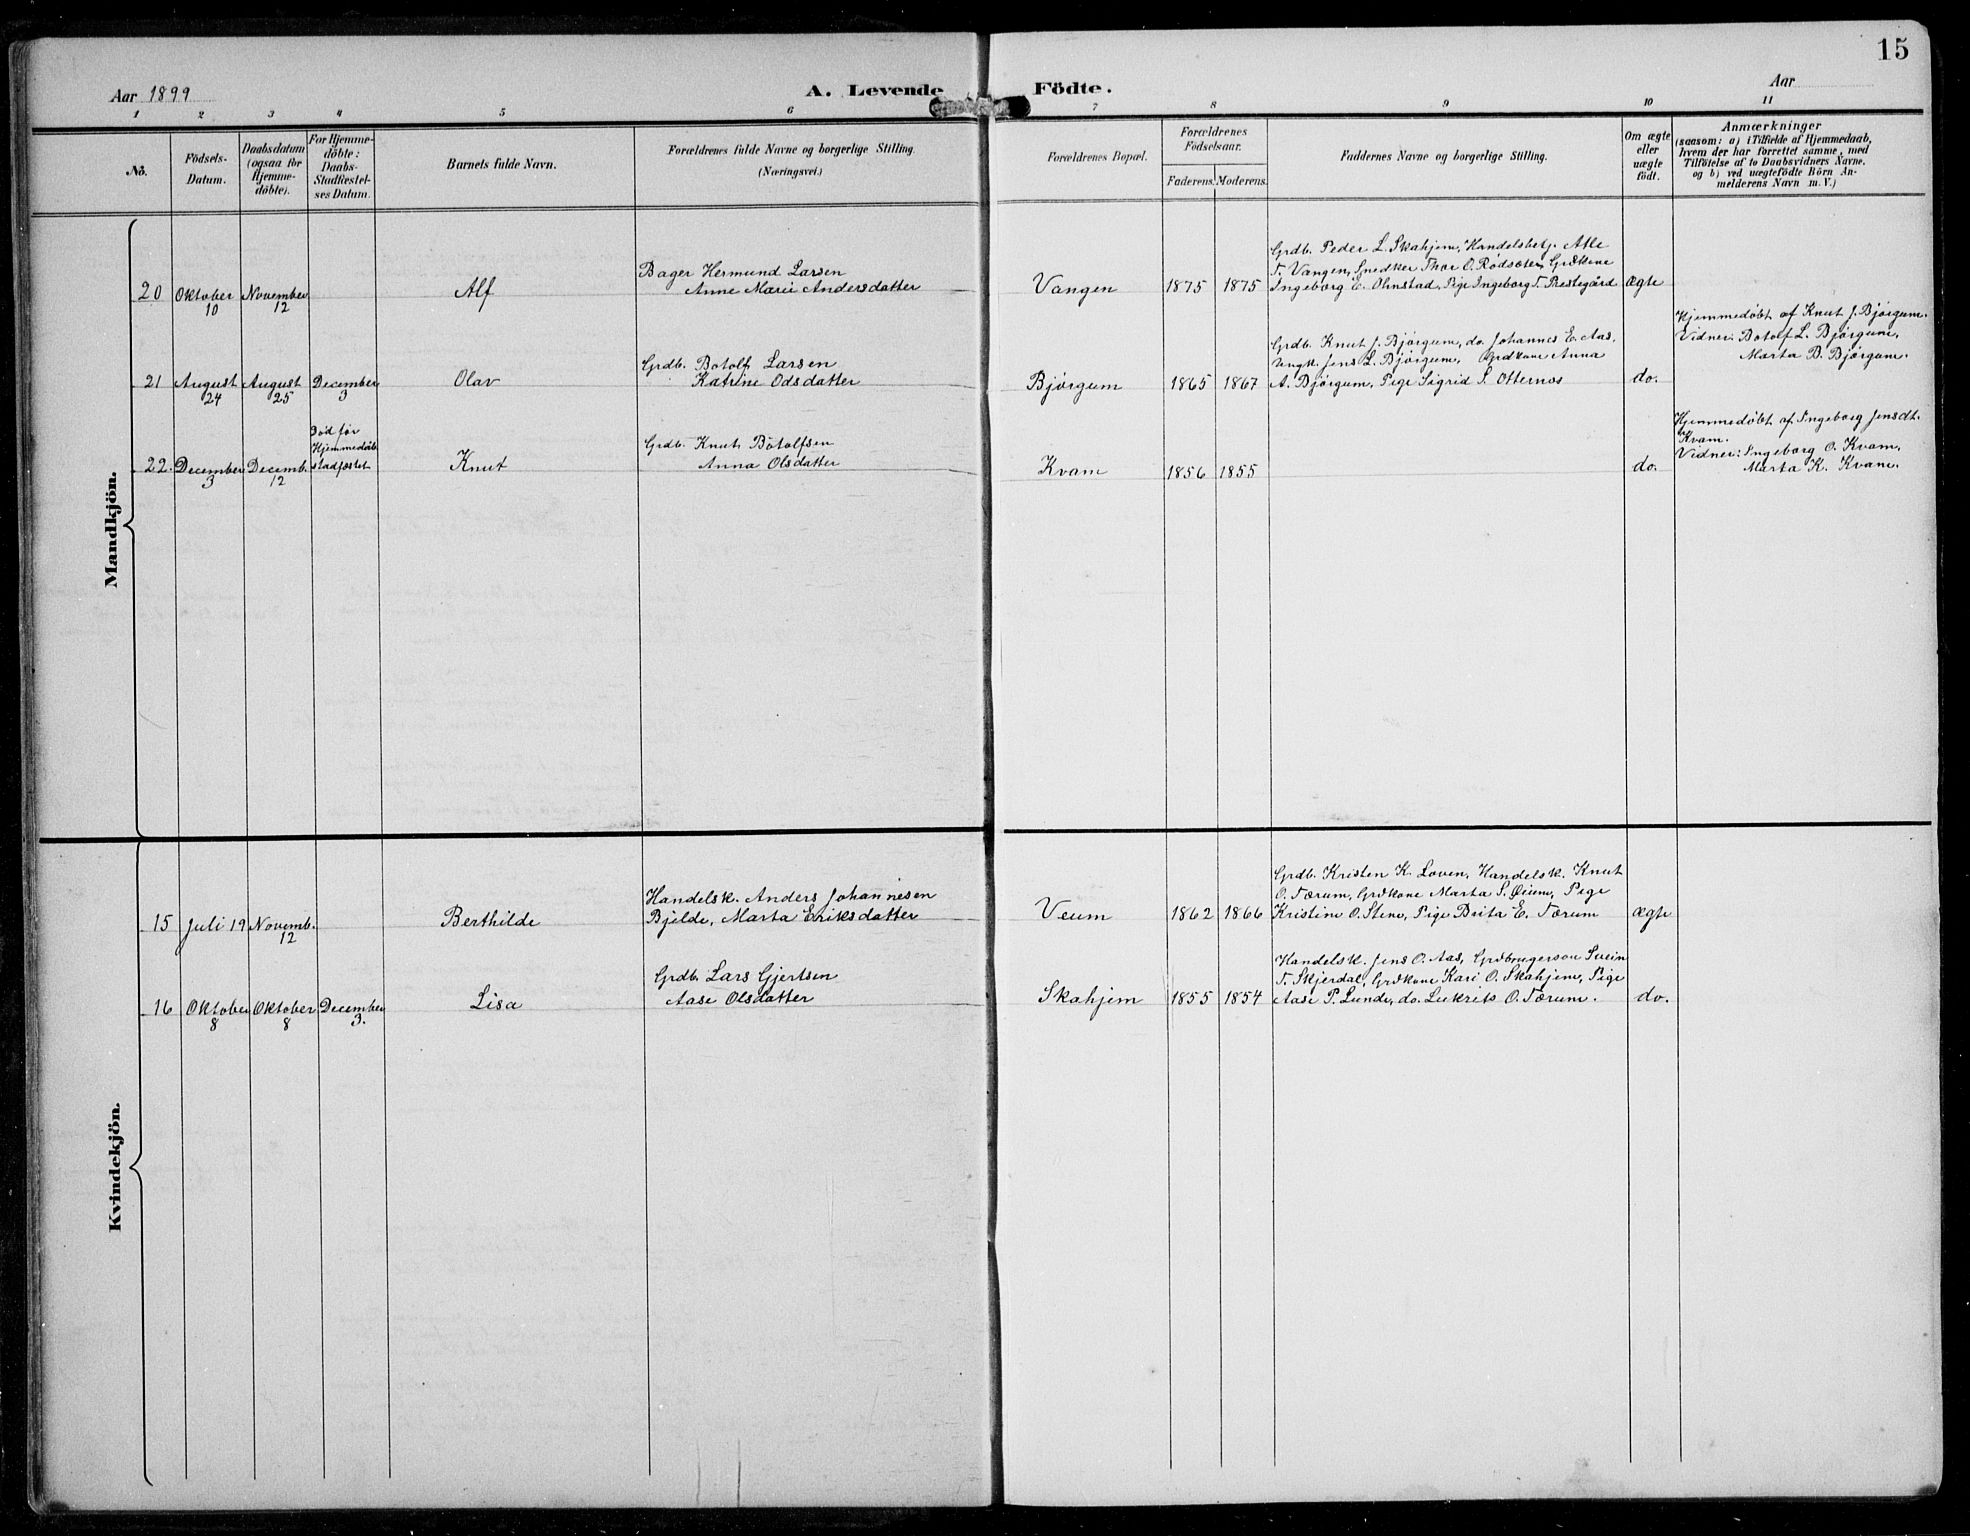 15
Aar 1899
A. Levende Födte.
Aar
1 2 3 4 5 6 7 8 9 10 11
No.
Födsels-
Datum.
Daabsdatum
(ogsaa for
Hjemme-
döbte).
For Hjemme-
döbte:
Daabs-
Stadfæstel-
ses Datum.
Barnets fulde Navn.
Forældrenes fulde Navne og borgerlige Stilling.
(Næringsvei.)
Forældrenes Bopæl.
Forældrenes
Födselsaar.
Faderens. Moderens.
Faddernes Navne og borgerlige Stilling.
Om ægte
eller
uægte
födt.
Anmærkninger
(saasom: a) i Tilfælde af Hjemmedaab,
hvem der har forrettet samme, med
Tilföielse af to Daabsvidners Navne,
og b) ved uægtefödte Börn An-
melderens Navn m. V.)
Mandkjön.
20 Oktober 10 November 12
Alf
Bager Hermund Larsen
Anne Marie Andersdatter
Vangen 1875 1875
Grdb. Peder L. Skahjem, Handelsbetj. Atle
T. Vangen, Snedker Thor O. Rødsæter, Grdkone
Ingeborg E. Ohnstad, Pige Ingeborg T. Prestegård
ægte
21 August 24 August 25 December 3
Olav
Grdb. Botolf Larsen
Katrine Odsdatter
Bjørgum 1865 1867
Grdb. Knut J. Bjørgum, do. Johannes E. Aas,
Ungk. Jens L. Bjørgum, Grdkone Anna
A. Bjørgum, Pige Sigrid S. Otternes
do.
Hjemmedøbt af Knut J. Bjørgum.
Vidner: Botolf L. Bjørgum,
Marta B. Bjørgum.
22. December 3 Decemb. 12
Død før
Hjemmedåb
stadfæstet
Knut
Grdb. Knut Botolfsen
Anna Olsdatter
Kvam 1856 1855
do.
Hjemmedøbt af Ingeborg Jensdt.
Kvam.
Vidner: Ingeborg O. Kvam,
Marta K. Kvam.
Kvindekjön.
15 Juli 19 Novemb. 12
Berthilde
Handelsk. Anders Johannesen
Bjelde, Marta Eriksdatter
Veum 1862 1866
Grdb. Kristen K. Loven, Handelsk. Knut
O. Tærum, Grdkone Marta S. Øium, Pige
Kristine O. Stene, Pige Brita E. Tærum
ægte
16 Oktober 8 Oktober 8 December 3.
Lisa
Grdb. Lars Gjertsen
Aase Olsdatter
Skahjem 1855 1854
Handelsk. Jens O. Aas, Grdbrugerson Svein
T. Skjerdal, Grdkone Kari O. Skahjem, Pige
Aase P. Lunde, do. Lukrits O. Tærum.
do.